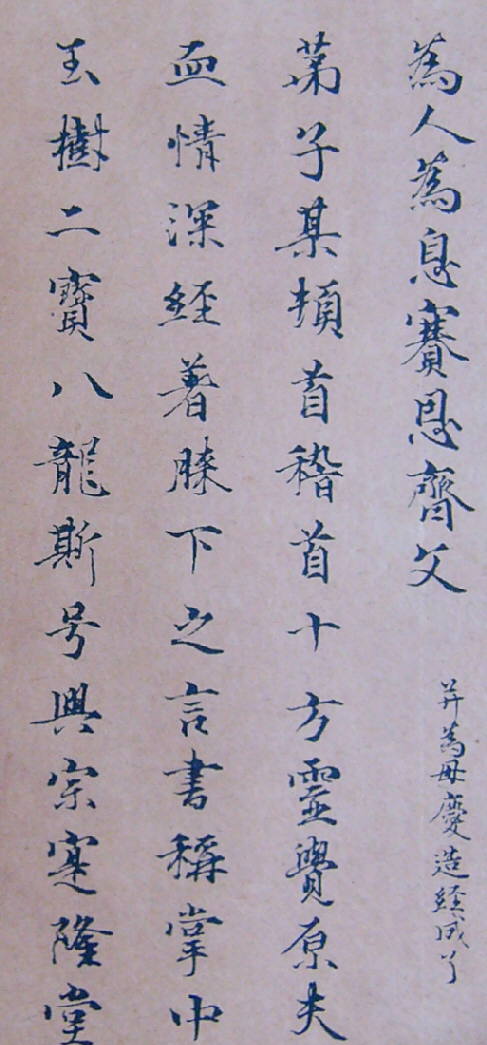 為人為息賽恩齊文 并為母慶造経成了
苐子某頓首稽首十方靈覺原夫
血情深経著膝下之言書稱掌中
玉樹二寶八龍斯号興宗寔隆堂